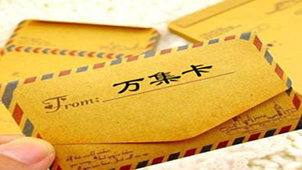 万集卡
From: